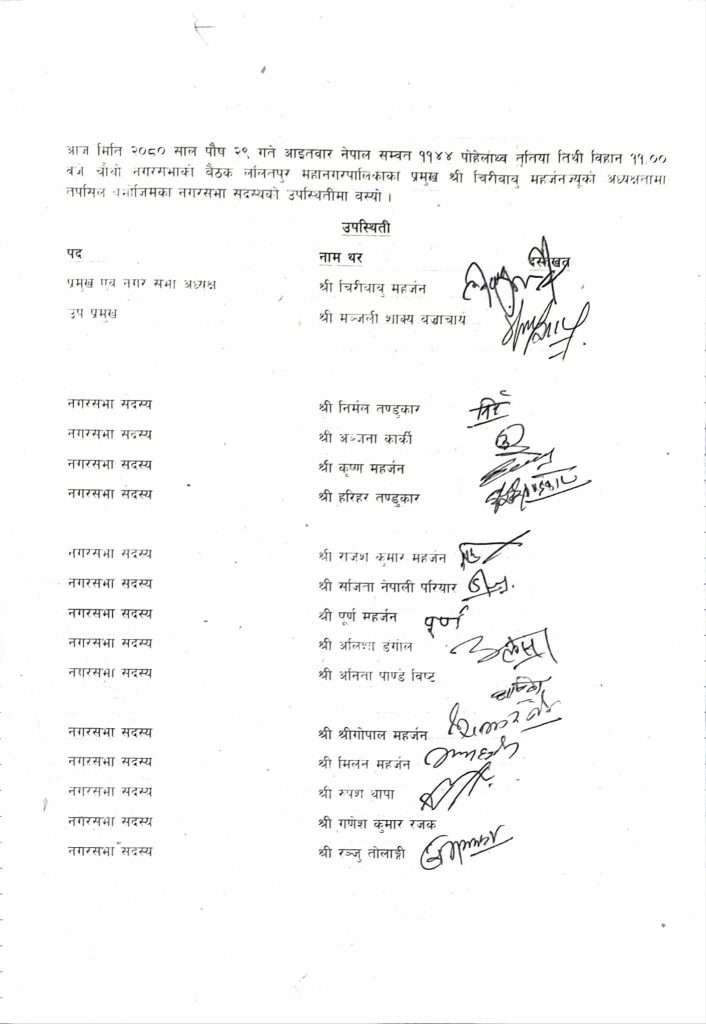 आज मिति २०८० साल पौष २९ गते आइतवार नेपाल सम्वत ११४४ पोहेलाथ्व तृतिया तिथी विहान ११.०० 
वजे चौथो नगरसभाको बैठक ललितपुर महानगरपालिकाका प्रमुख श्री चिरीबाबु महर्जनज्यूको अध्यक्षतामा
तपसिल बमोजिमका नगरसभा सदस्यको उपस्थितीमा वस्यो ।
उपस्थिती
पद नाम थर दस्तखत
प्रमुख एवं नगर सभा अध्यक्ष श्री चिरीबाबु महर्जन
उप प्रमुख श्री मञ्जली शाक्य बज्राचार्य
नगरसभा सदस्य श्री निर्मल तण्डुकार
नगरसभा सदस्य श्री अञ्जना कार्की
नगरसभा सदस्य श्री कृष्ण महर्जन
नगरसभा सदस्य श्री हरिहर तण्डुकार
नगरसभा सदस्य श्री राजेश कुमार महर्जन
नगरसभा सदस्य श्री सजिता नेपाली परियार
नगरसभा सदस्य श्री पूर्ण महर्जन पूर्ण
नगरसभा सदस्य श्री अलिशा डंगोल
नगरसभा सदस्य श्री अनिता पाण्डे विष्ट
नगरसभा सदस्य श्री श्रीगोपाल महर्जन
नगरसभा सदस्य श्री मिलन महर्जन
नगरसभा सदस्य श्री थापा
नगरसभा सदस्य श्री गणेश कुमार रजक
नगरसभा सदस्य श्री रञ्जु तोलाङ्गी